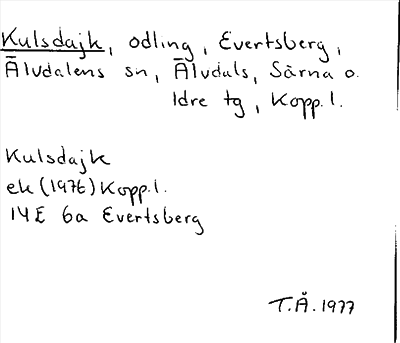 Kulsdajk, odling, Evertsberg,
Älvdalens sn, Älvdals, Särna o.
Idre tg, Kopp. l.
Kulsdajk
ek (1976) Kopp. l.
14E 6a Evertsberg
T.Å. 1977